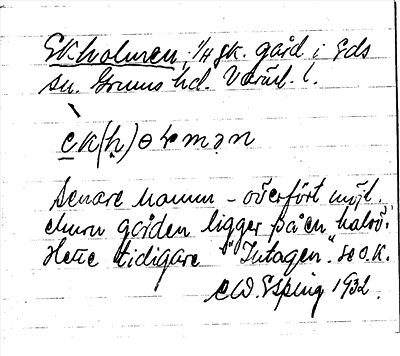 Ekholmen, 1/4 sk. gård i Eds
sn. Grums hd. Värml. l.
èk(h)ɵɽmən
Senare namn - överfört möjl.
ehuru gården ligger på en halvö.
Hette tidigare "Intagen". se O.K.
CW. Esping 1932.